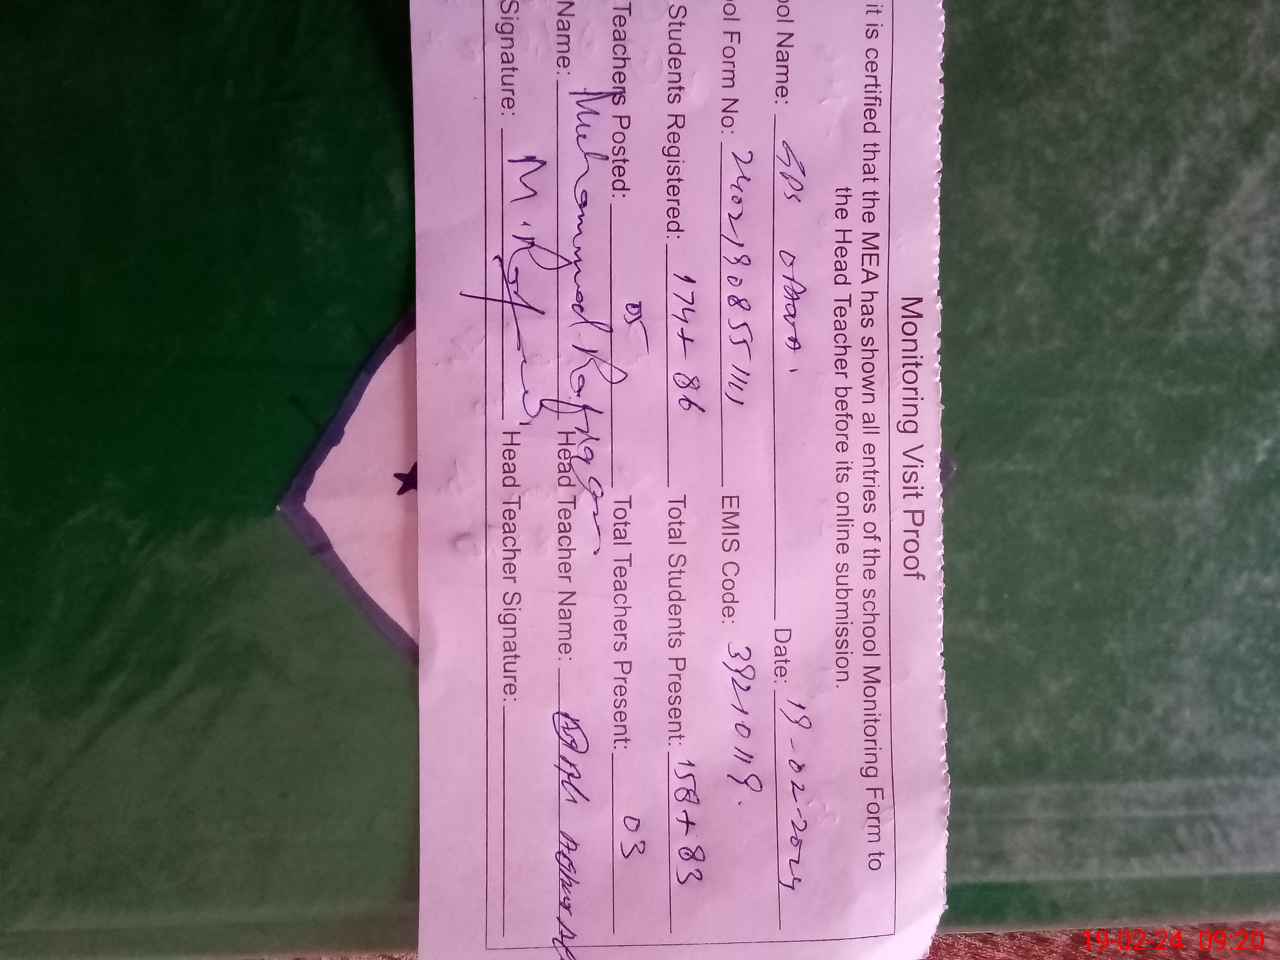 Monitoring Visit Proof
it is certified that the MEA has shown all entries of the school Monitoring Form to
the Head Teacher before its online submission.
ool Name: GPS Date: 19-02-2024
ol Form No: EMIS Code: 39210119.
Students Registered: 174+86 Total Students Present: 158+83
Teachers Posted: 05 Total Teachers Present: 03
Name: Muhammad Rafique Head Teacher Name:
Signature: M. Head Teacher Signature:
19-02-24 09:20